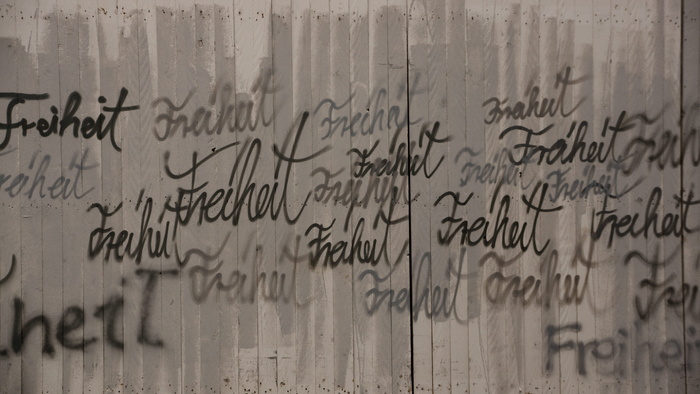 Freiheit
Freiheit
Freiheit
Freiheit
Freiheit
Freiheit
Freiheit
Freiheit
Freiheit
reiheit
Freiheit
Freiheit
Freiheit
Freiheit
Freiheit
Freiheit
Freiheit
Freiheit
Freiheit
heit